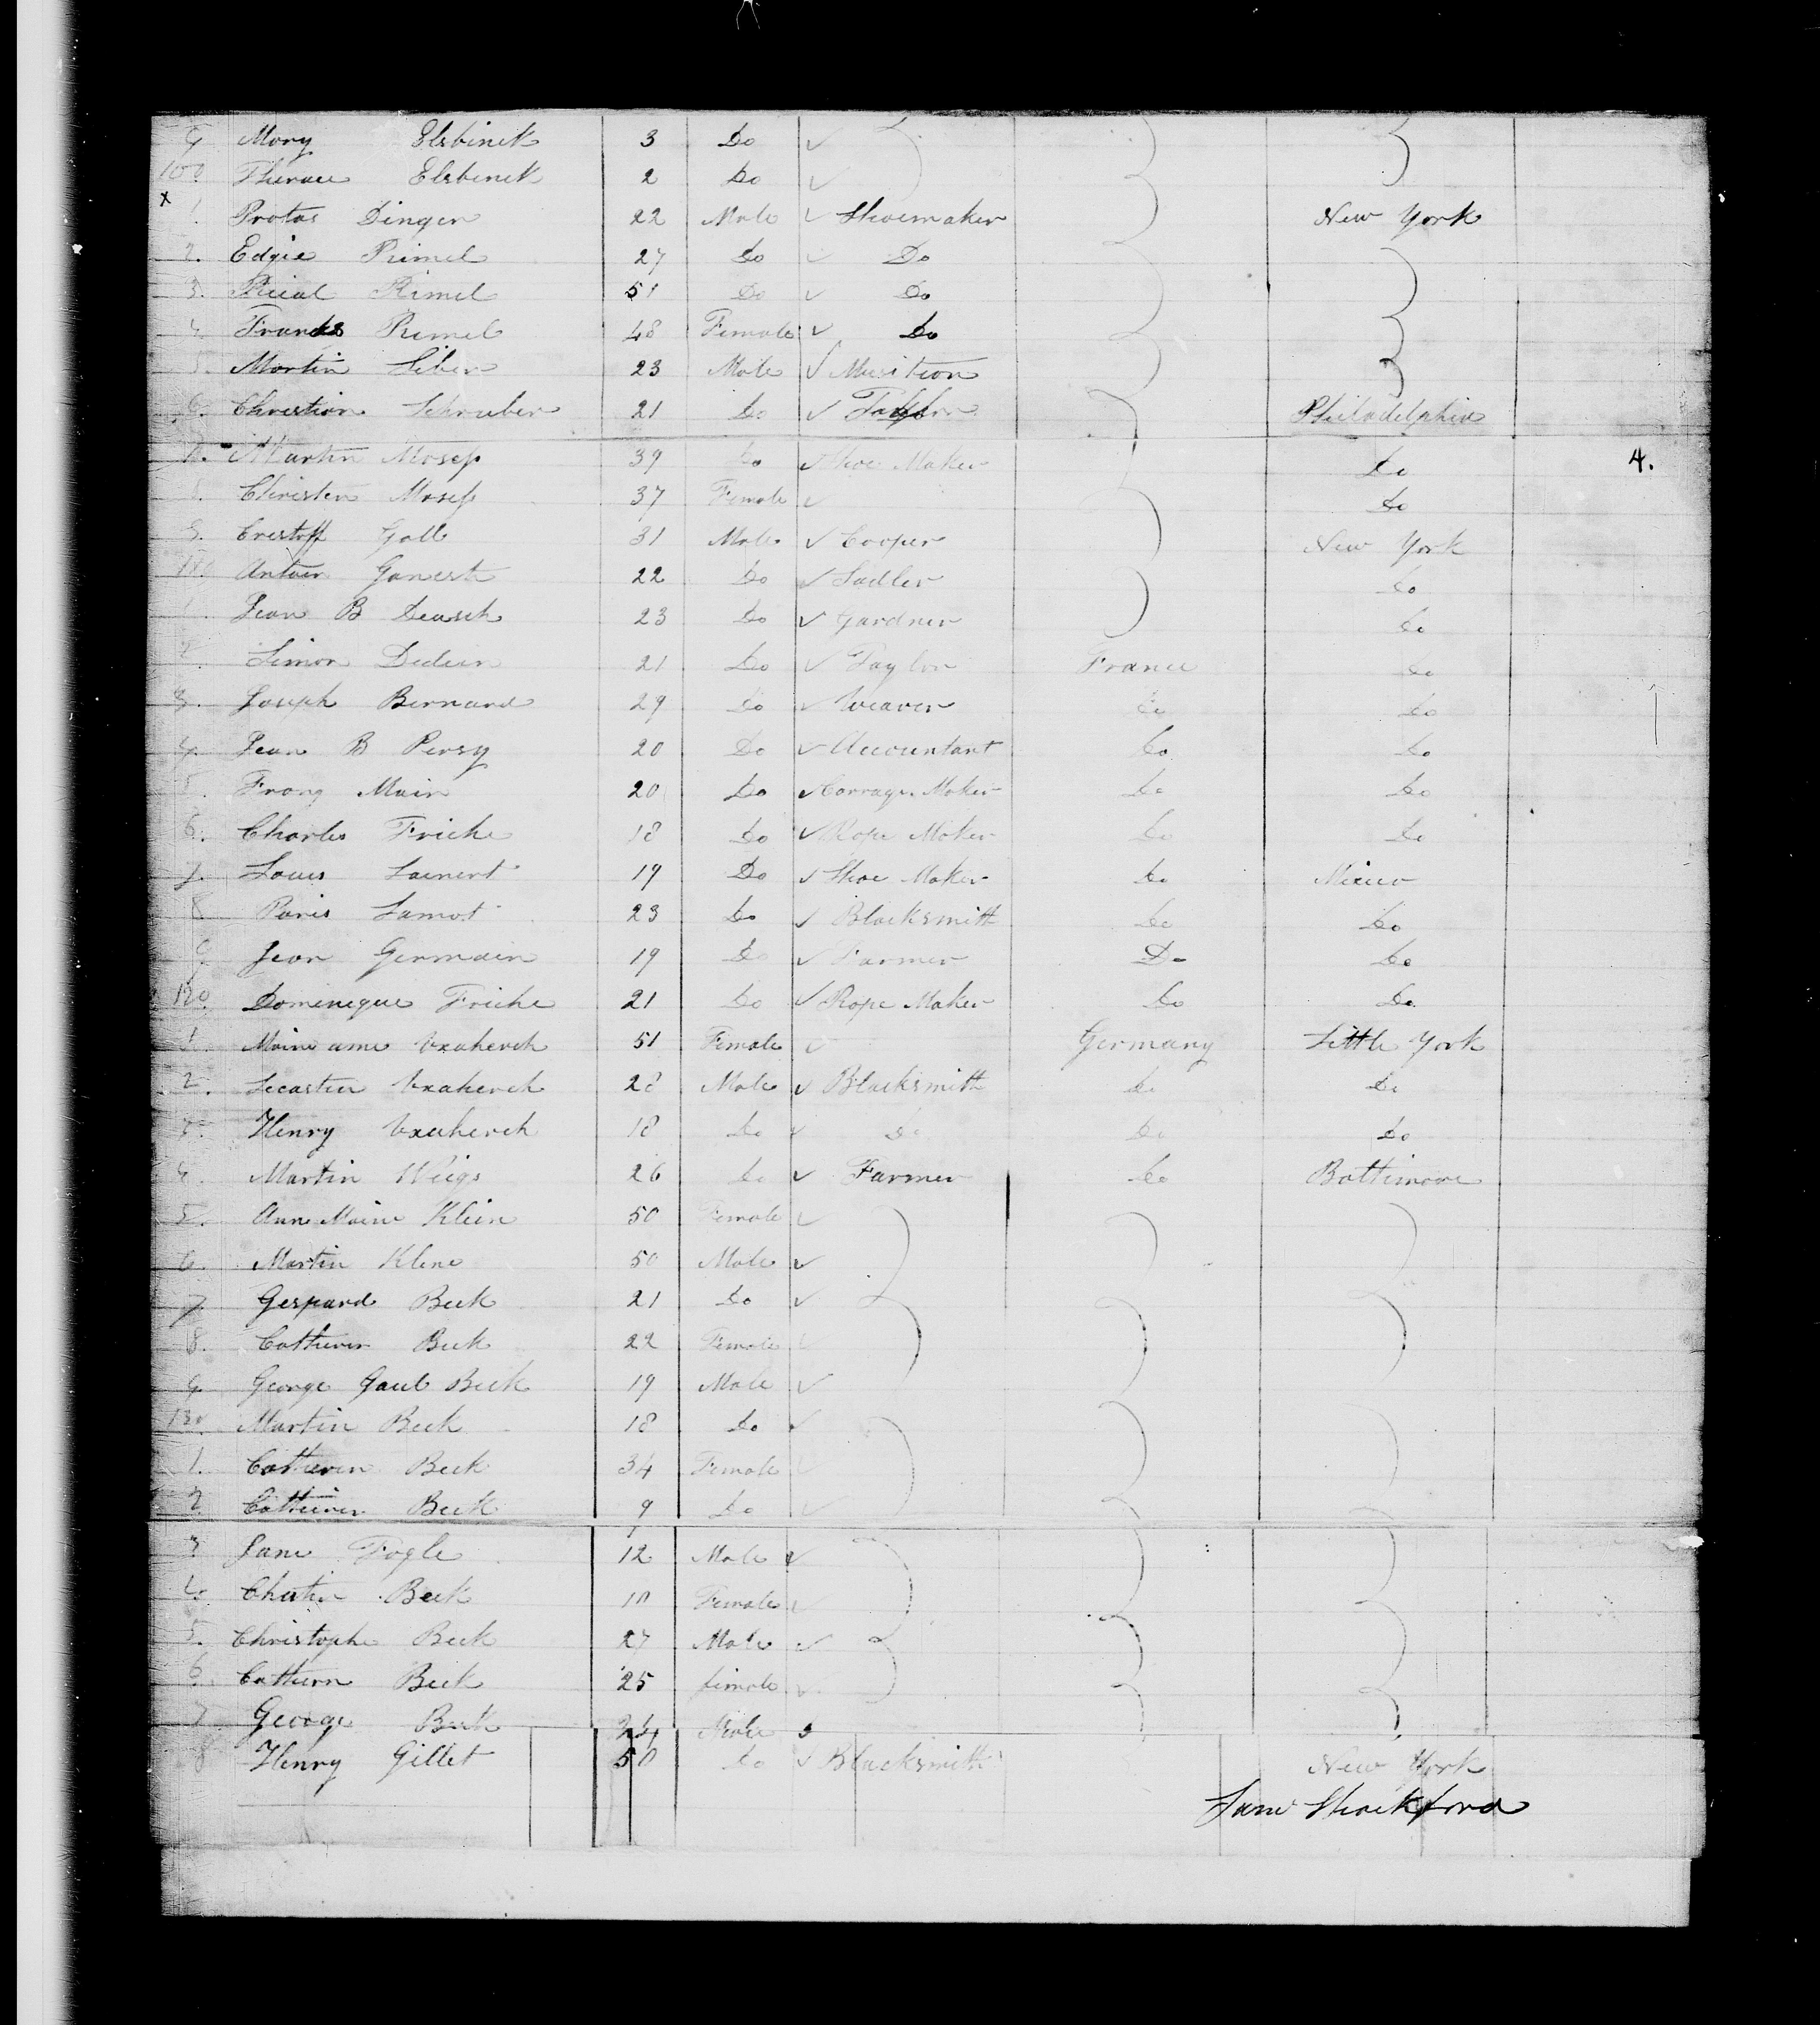 9 Mary Elsbinek 3 Do
100 Therace Elsbinek 2 Do
x 1. Protas Dinger 22 Male Shoemaker New York
2. Edgie Rimel 27 Do Do
3. Rimel 51 Do Do
4 Frances Rimel 48 Female Do
5. Martin Siber 23 Male Musition
6. Christian Schruber 21 Do Taylor Philadelphia
Martin Mosep 39 Do Shoe Maker Do 4.
8. Christen Mosep 37 Female Do
9. Crestoff Gall 31 Male Cooper New York
110 Antoin Ganert 22 Do Sadler Do
1. Jean B Deasch 23 Do Gardner Do
2. Simon Dedien 21 Do Taylor France Do
3. Joseph Bernard 29 Do Weaver Do Do
4. Jean B Persy 20 Do Accountant Do Do
5. Main 20 Do Carrage Maker Do Do
6. Charles Friche 18 Do Rope Maker Do Do
7. Louis Lainert 19 Do Shoe Maker Do Mexico
8 Paris Lamot 23 Do Blacksmith Do Do
9 Jean Germain 19 Do Farmer Do Do
120. Domineque Friche 21 Do Rope Maker Do Do
1. 51 Female Germany Little York
2. 28 Male Blacksmith Do Do
3. Henry 18 Do Do Do Do
4. Martin Weigs 26 Do Farmer Do Baltimore
5. Ann Maine Klein 50 Female
6. Martin Klene 50 Male
7 Gespard Beck 21 Do
8. Catheren Beck 22 Female
9 George Gaub Beck 19 Male
130. Martin Beck 18 Do
1. Catheren Beck 34 Female
2 Catherien Beck 9 Do
3 Jane Fogle 12 Male
4. Beck 10 Female
5. Christophe Beck 27 Male
6. Cathern Beck 25 female
7. George Beck 24 Male
8 Henry Gillet 50 Do Blacksmith New York
Sam Shackford